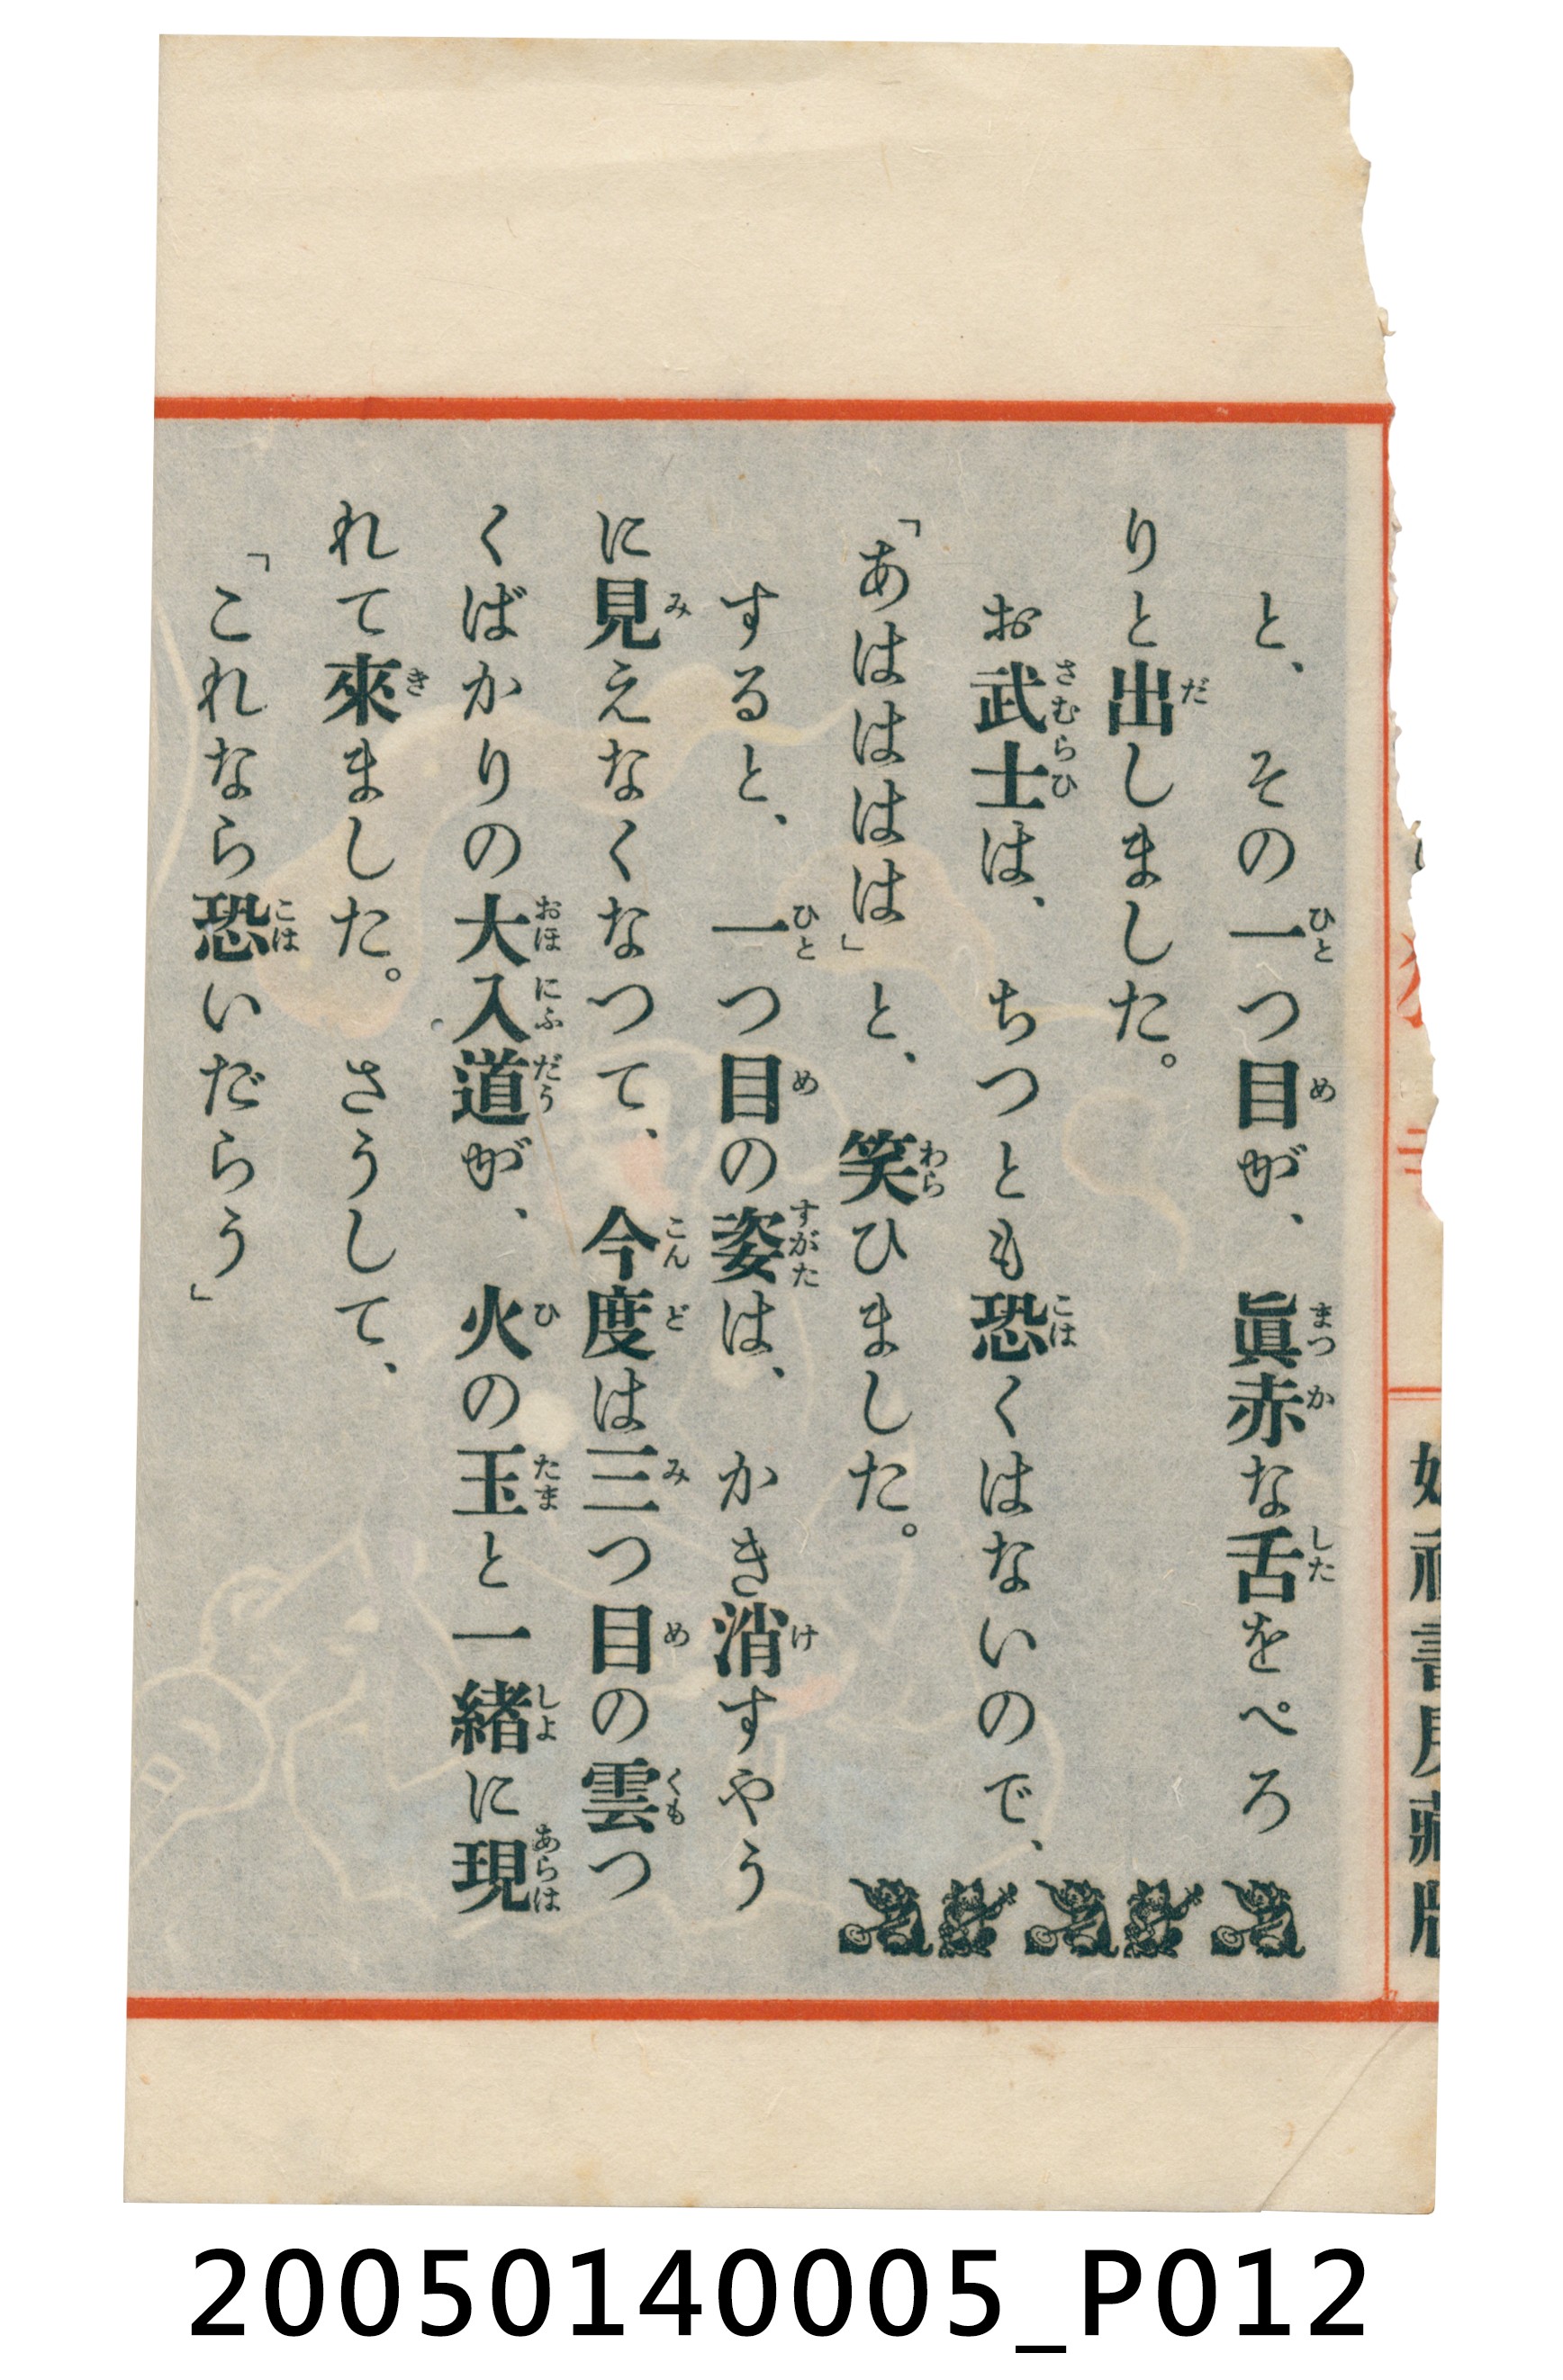 と、その一つ目が、眞赤な舌をぺろ
りと出しました。
お武士は、ちつとも恐くはないので、
「あはははは」と、笑ひました。
すると、一つ目の姿は、かき消すやう
に見えなくなつて、今度は三つ目の雲つ
くばかりの大入道が、火の玉と一緒に現
れて來ました。さうして、
「これなら恐いだらう」
書房藏版
20050140005_P012